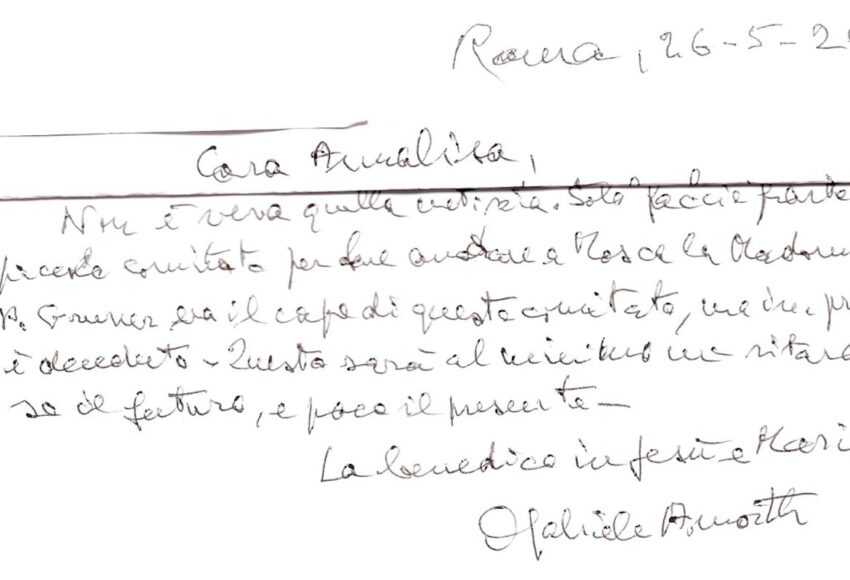 Roma, 26-5-20
Cara Annalisa,
Non è vera quella notizia. Solo faccio parte
piccolo comitato per fare andare a Mosca la Madonn
P. Gruner era il capo di questo comitato, ma in. pr
è deceduto - Questo sarà al minimo un ritard
so il futuro, e poco il presente -
La benedico in Gesù e Mari
D Gabriele Amorth